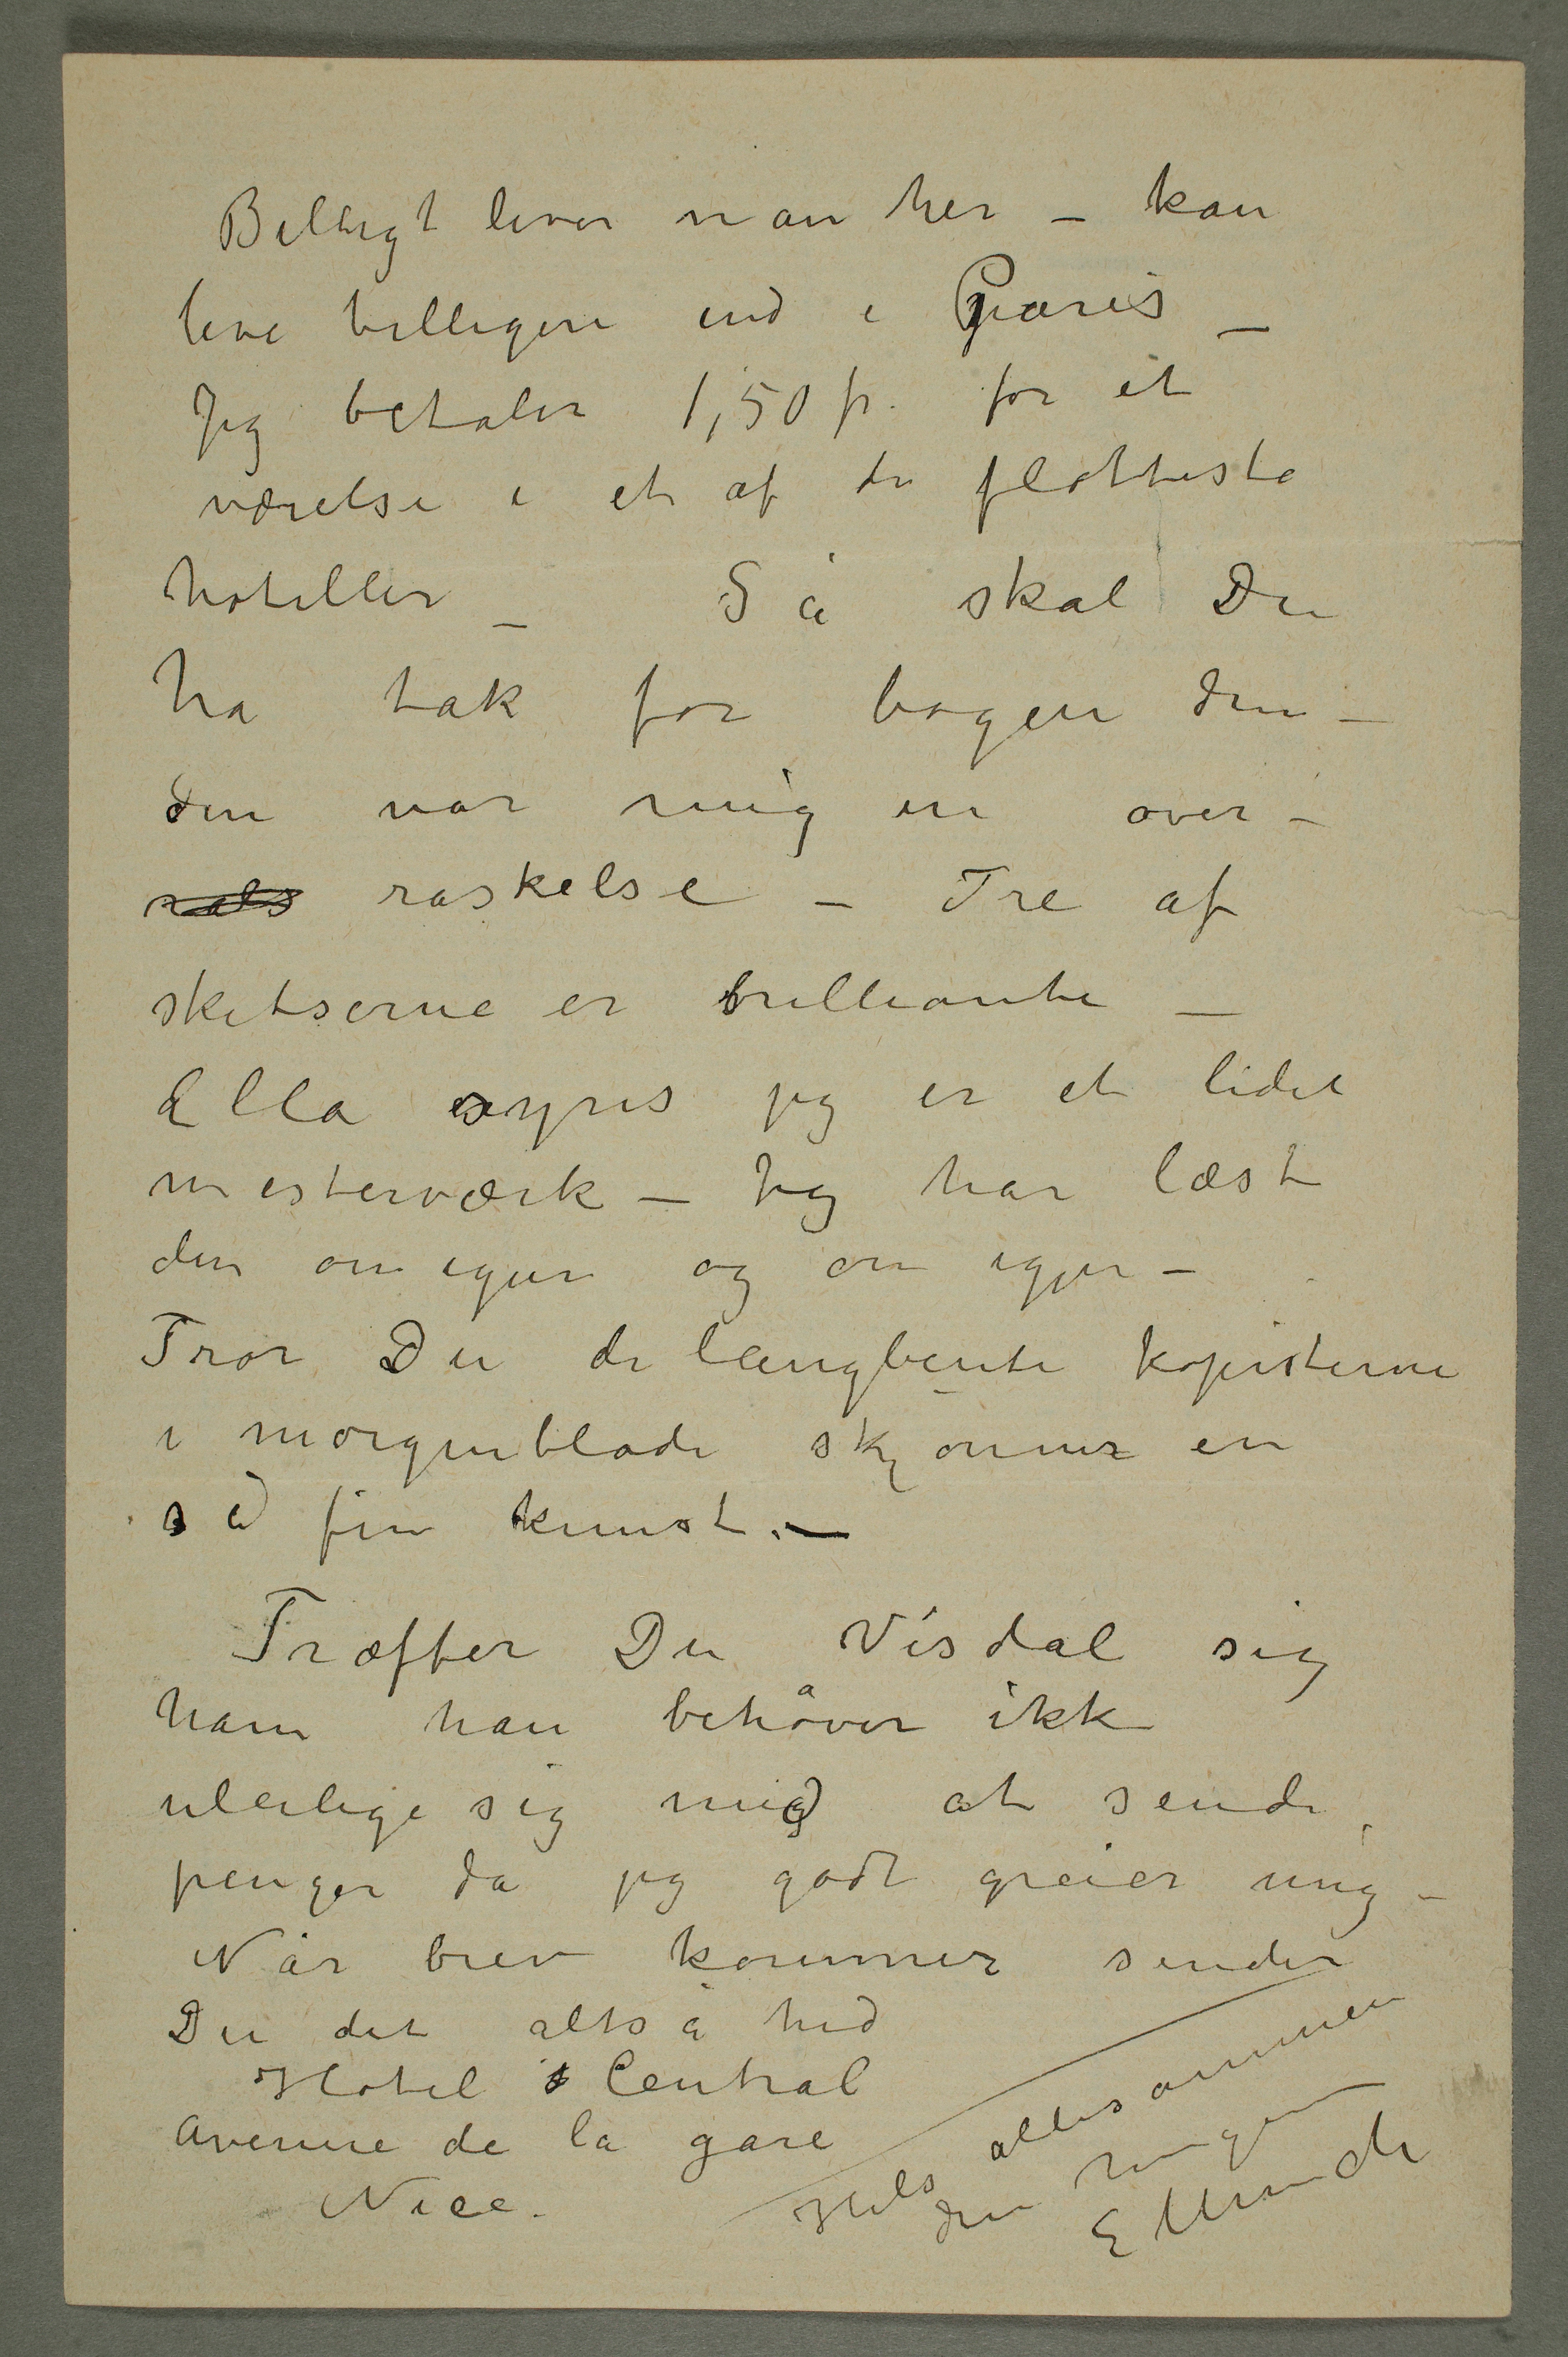 Billigt lever man her – kan
leve billigere end i Paris –
Jeg betaler 1,50 fr. for et
værelse i et af de flotteste
hoteller – Så skal Du
ha tak for bogen din –
den var mig en over-
raskelse – Tre af
skitserne er brilliante –
Ella synes jeg er et lidet
mesterværk – Jeg har læst
den om igjen og om igjen –
Tror Du de langbente kopisterne
i morgenblade skjønner en
så fin kunst. –
Træffer Du Visdal sig
ham han behøver ikke
uleilige sig med at sende
penger da jeg godt greier mig –
Når brev kommer sender
Du det altså hid
Hotel Central
Avenue de la gare
Nice.
Hils allesammen
din
E Munch